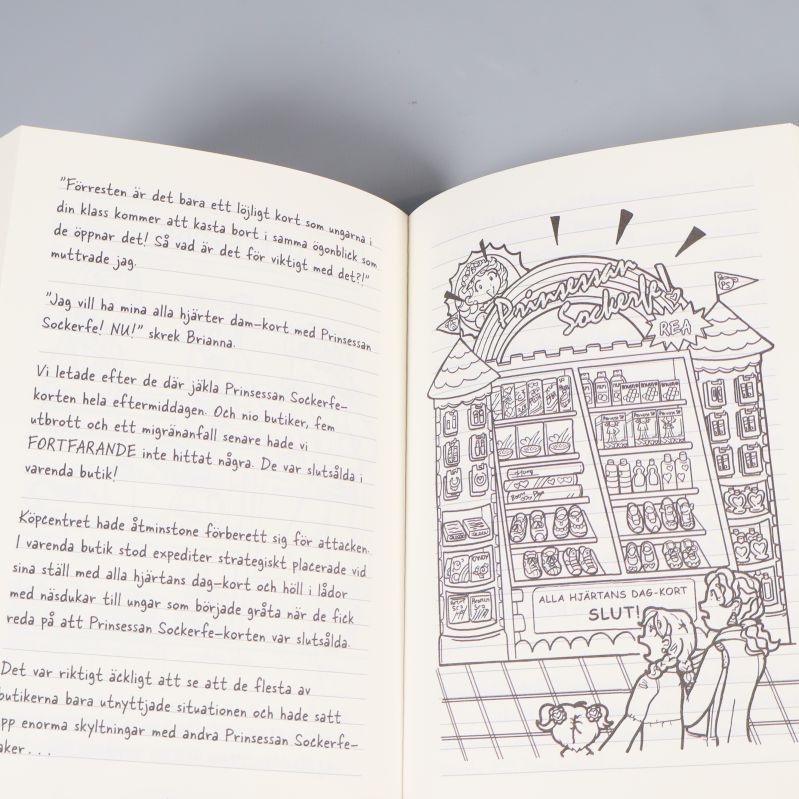 "Förresten är det bara ett löjligt kort som ungarna i
din klass kommer att kasta bort i samma ögonblick som
de öppnar det! Så vad är det för viktigt med det?!"
muttrade jag.
"Jag vill ha mina alla hjärter dam-kort med Prinsessan
Sockerfe! NU!" skrek Brianna.
Vi letade efter de där jäkla Prinsessan Sockerfe-
korten hela eftermiddagen. Och nio butiker, fem
utbrott och ett migränanfall senare hade vi
FORTFARANDE inte hittat några. De var slutsålda i
varenda butik!
Köpcentret hade åtminstone förberett sig för attacken.
I varenda butik stod expediter strategiskt placerade vid
sina ställ med alla hjärtans dag-kort och höll i lådor
med näsdukar till ungar som började gråta när de fick
reda på att Prinsessan Sockerfe-korten var slutsålda.
Det var riktigt äckligt att se att de flesta av
butikerna bara utnyttjade situationen och hade satt
pp enorma skyltningar med andra Prinsessan Sockerfe-
aker...
Prinsessan
Sockerfe
REA
PS
ALLA HJÄRTANS DAG-KORT
SLUT!